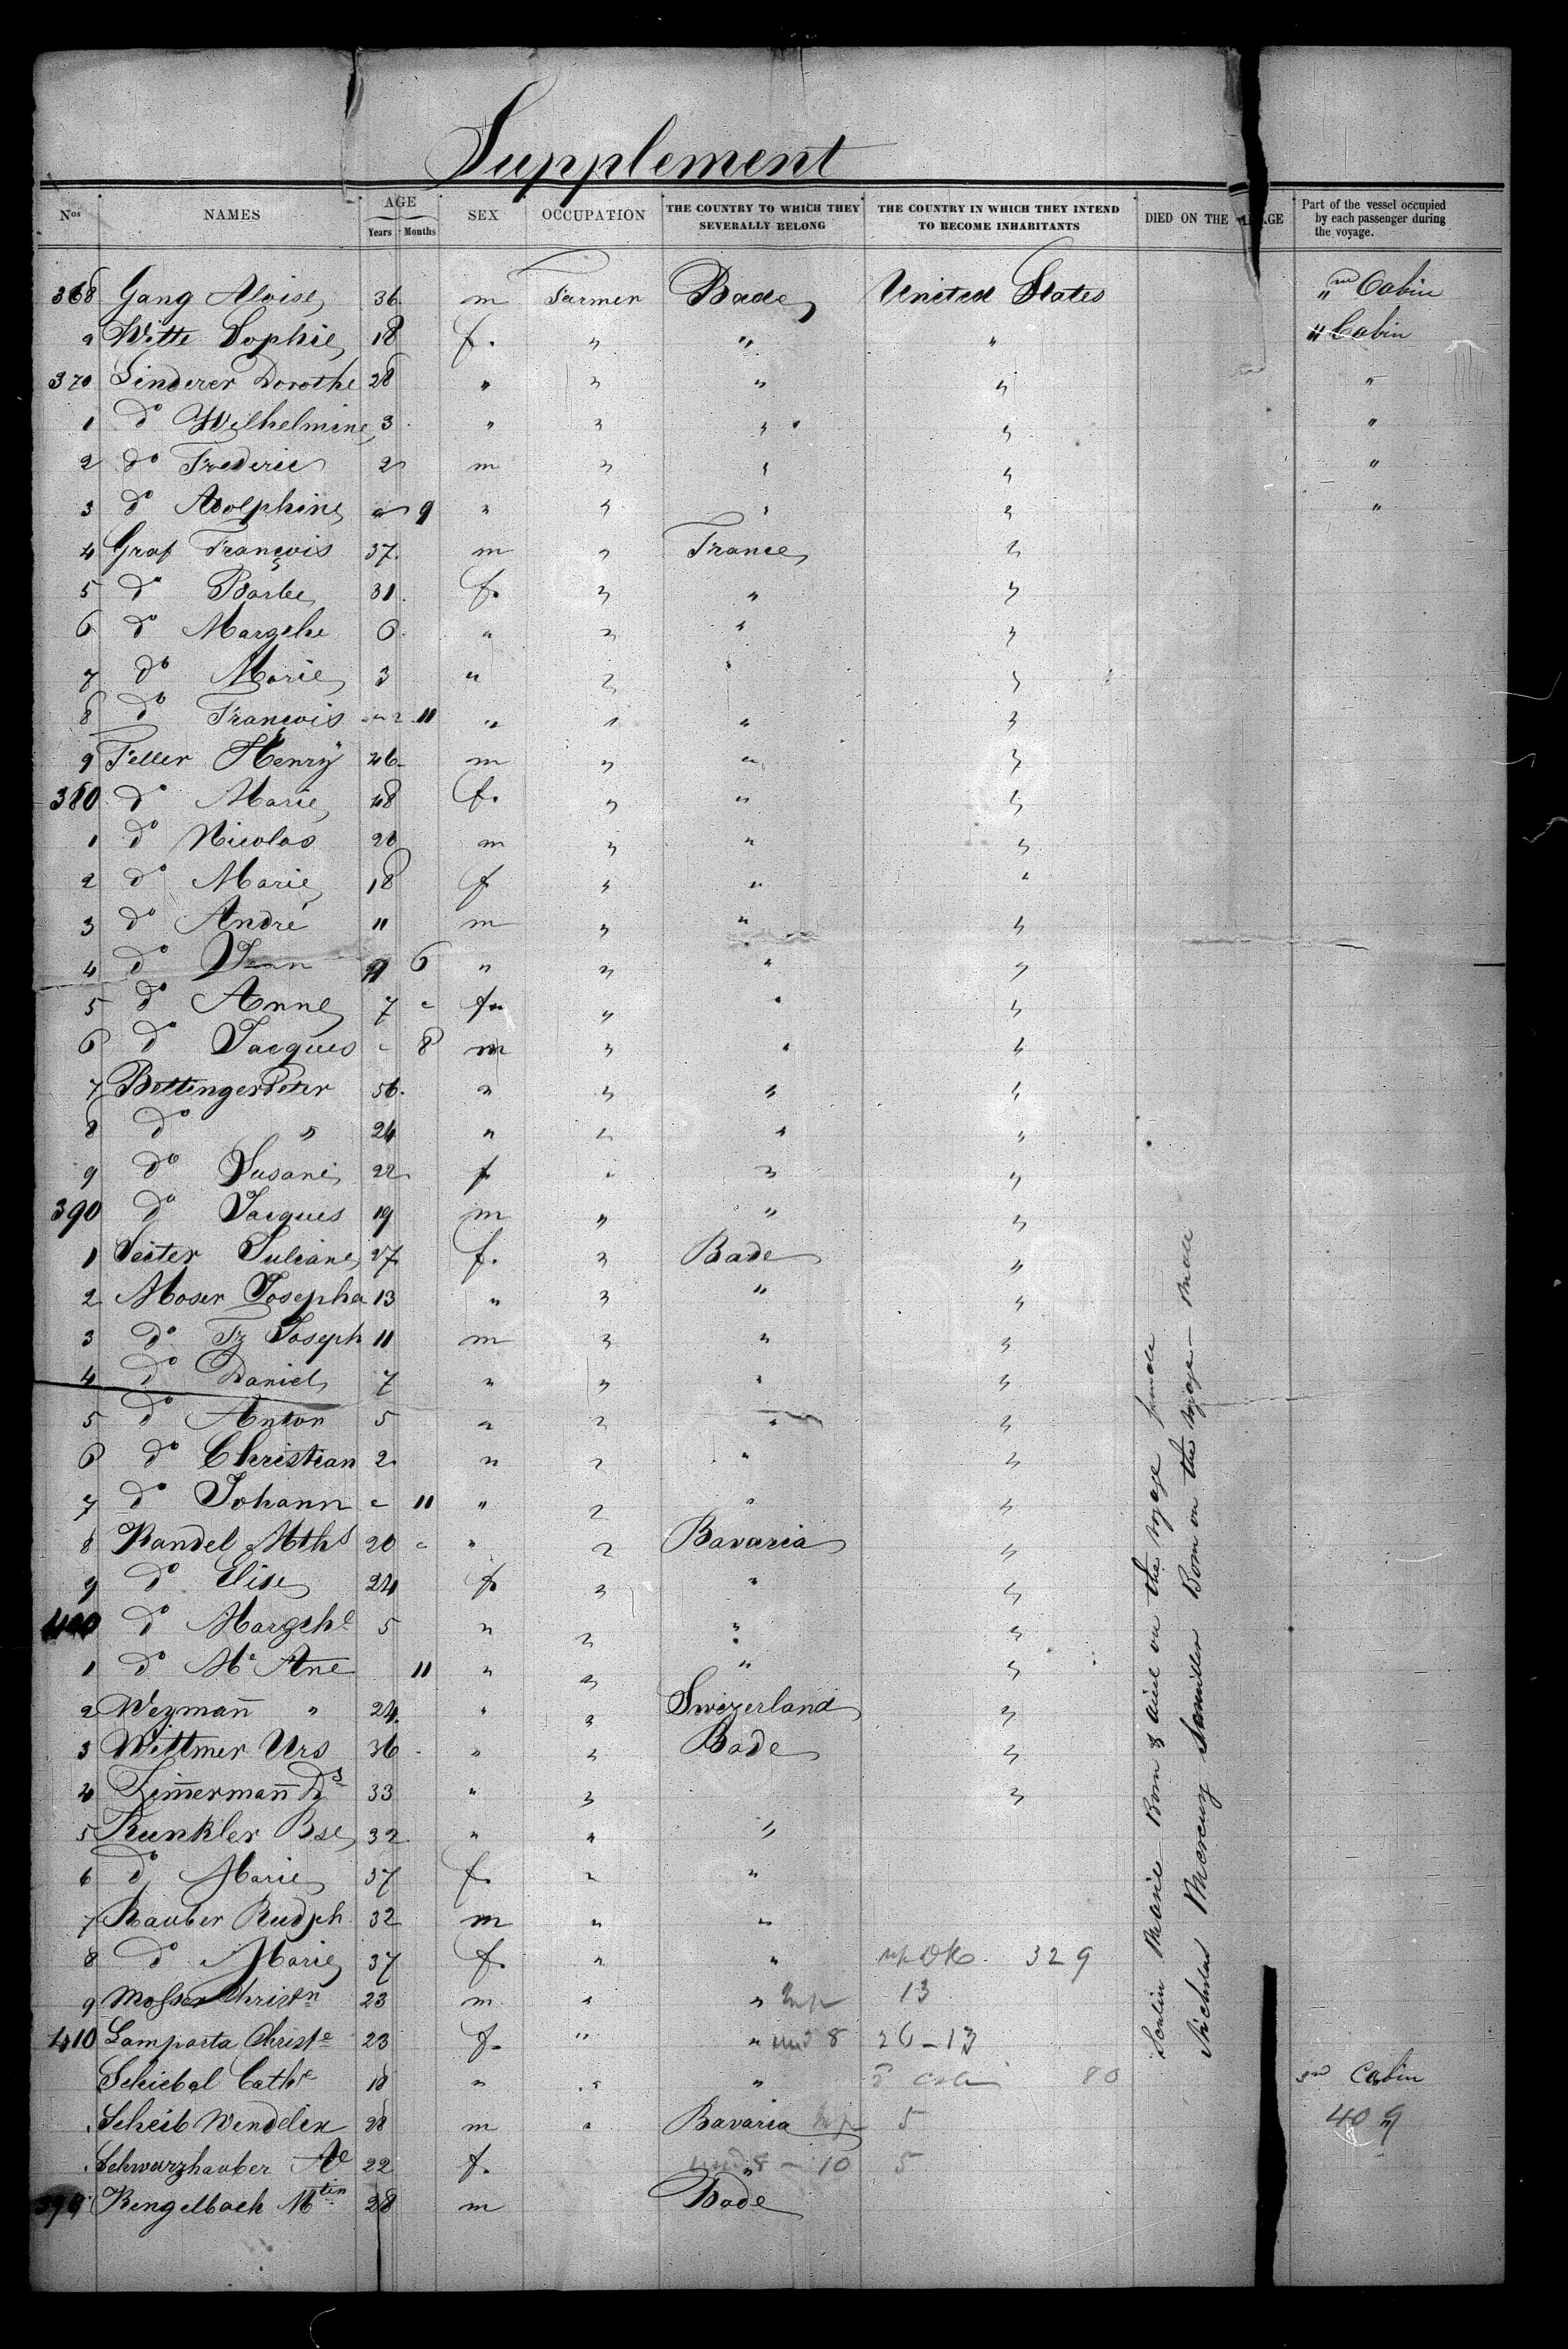 Supplement
Nos NAMES AGE Years Months SEX OCCUPATION THE COUNTRY TO WHICH THEY SEVERALLY BELONG THE COUNTRY IN WHICH THEY INTEND TO BECOME INHABITANTS DIED ON THE Part of the vessel occupied by each passenger during the voyage.
368 Gang Aloise 36 m Farmer Bade United States " Cabin
9 Witte Sophie 18 f. " " " " Cabin
370 Linderer Dorothe 28 " " " " "
1 do Wilhelmine 3 " " " " "
2 do Frederic 2 m " " " "
3 do Adolphine " 9 " " " " "
4 Graf François 37 m " France "
5 do Barbe 31 f. " " "
6 do Margthe 6 " " " "
7 do Marie 3 " " " "
8 do François " 11 " " " "
9 Feller Henry 46 m " " "
380 do Marie 48 f. " " "
1 do Nicolas 20 m " " "
2 do Marie 18 f " " "
3 do André 11 m " " "
4 do Jean 9 6 " " " "
5 do Anne 7 " f. " " "
6 do Jacques " 8 m " " "
7 Bettinger Peter 56 " " " "
8 do " 24 " " " "
9 do Susane 22 f " " "
390 do Jacques 19 m " " "
1 Seiter Juliane 27 f. " Bade "
2 Moser Josepha 13 " " " "
3 do Fz Joseph 11 m " " "
4 do Daniel 7 " " " "
5 do Anton 5 " " " "
6 do Christian 2 " " " "
7 do Johann " 11 " " " "
8 Kandel Mths 20 " " " Bavaria "
9 do Elise 24 f " " "
400 do Margthe 5 " " " "
1 do Me Ane 11 " " " "
2 Wezman̄ " 24 " " Swizerland "
3 Wittmer Urs 36 " " Bade "
4 Zim̄erman̄ 33 " " "
5 Kunkler Bse 32 " " "
6 do Marie 37 f. " "
7 Rauber Rudph 32 m " "
8 do Marie 37 f. " " 329
9 Mosser Christn 23 m " " 13
410 Lamparta Christe 23 f. " " und 8 26-13
Schiebal Cathe 18 " " " 80 Cabin
Scheib Wendelin 28 m " Bavaria 5 409
Schwarzhauber Ae 22 f. " und 8 - 10 5
Rengelbach Mtin 28 m Bade
Marie Born & died on the voyage female
Nicholas Mercury Born on the voyage - male